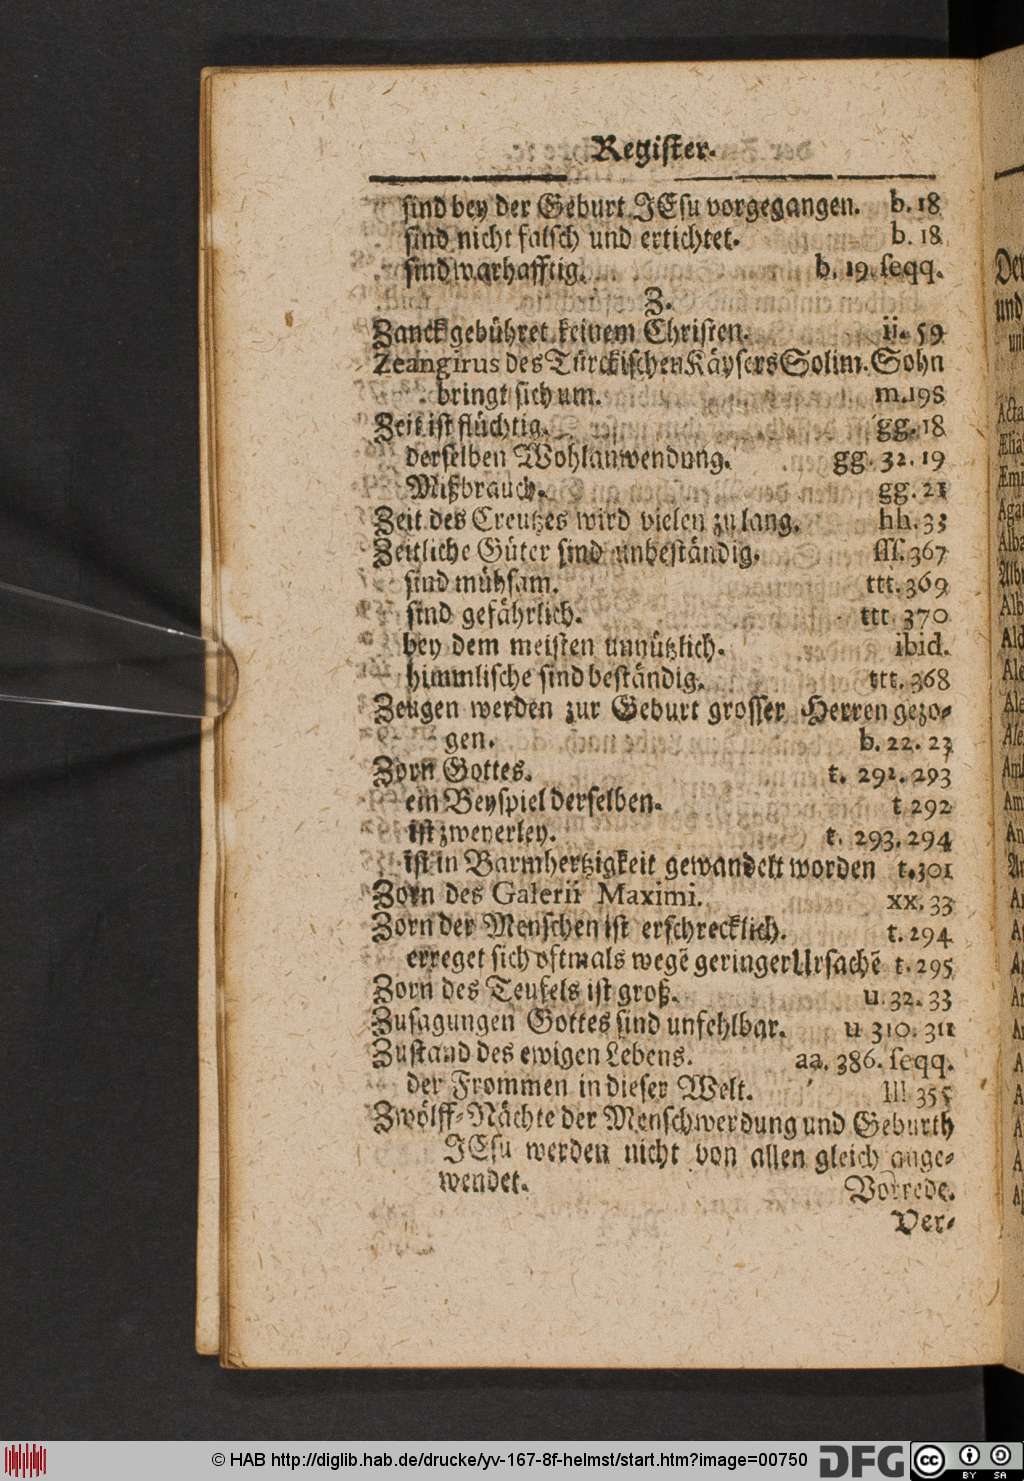 Register.
sind bey der Geburt JEsu vorgegangen. b. 18
sind nicht falsch und ertichtet. b. 18
sind warhafftig. b. 19. seqq.
Z.
Zanck gebühret keinem Christen. ii. 59
Zeangirus des Türckischen Käysers Solim. Sohn
bringt sich um. m. 198
Zeit ist flüchtig. gg. 18
derselben Wohlanwendung. gg. 32. 19
Mißbrauch. gg. 21
Zeit des Creutzes wird vielen zu lang. hh. 33
Zeitliche Güter sind unbeständig. sss. 367
sind mühsam. ttt. 369
sind gefährlich. ttt 370
bey dem meisten unnützlich. ibid.
himmlische sind beständig. ttt. 368
Zeugen werden zur Geburt grosser Herren gezo-
gen. b. 22. 23
Zorn Gottes. t. 291. 293
ein Beyspiel derselben. t 292
ist zweyerley. t. 293. 294
ist in Barmhertzigkeit gewandelt worden t. 301
Zorn des Galerii Maximi. xx. 33
Zorn der Menschen ist erschrecklich. t. 294
erreget sich oftmals wegē geringer Ursachē t. 295
Zorn des Teufels ist groß. u. 32. 33
Zusagungen Gottes sind unfehlbar. u 310. 311
Zustand des ewigen Lebens. aa. 386. seqq.
der Frommen in dieser Welt. lll 355
Zwölff-Nächte der Menschwerdung und Geburth
JEsu werden nicht von allen gleich ange-
wendet. Vorrede.
Ver-
Acta
Æmi
© HAB http://diglib.hab.de/drucke/yv-167-8f-helmst/start.htm?image=00750
DFG
cc
BY SA